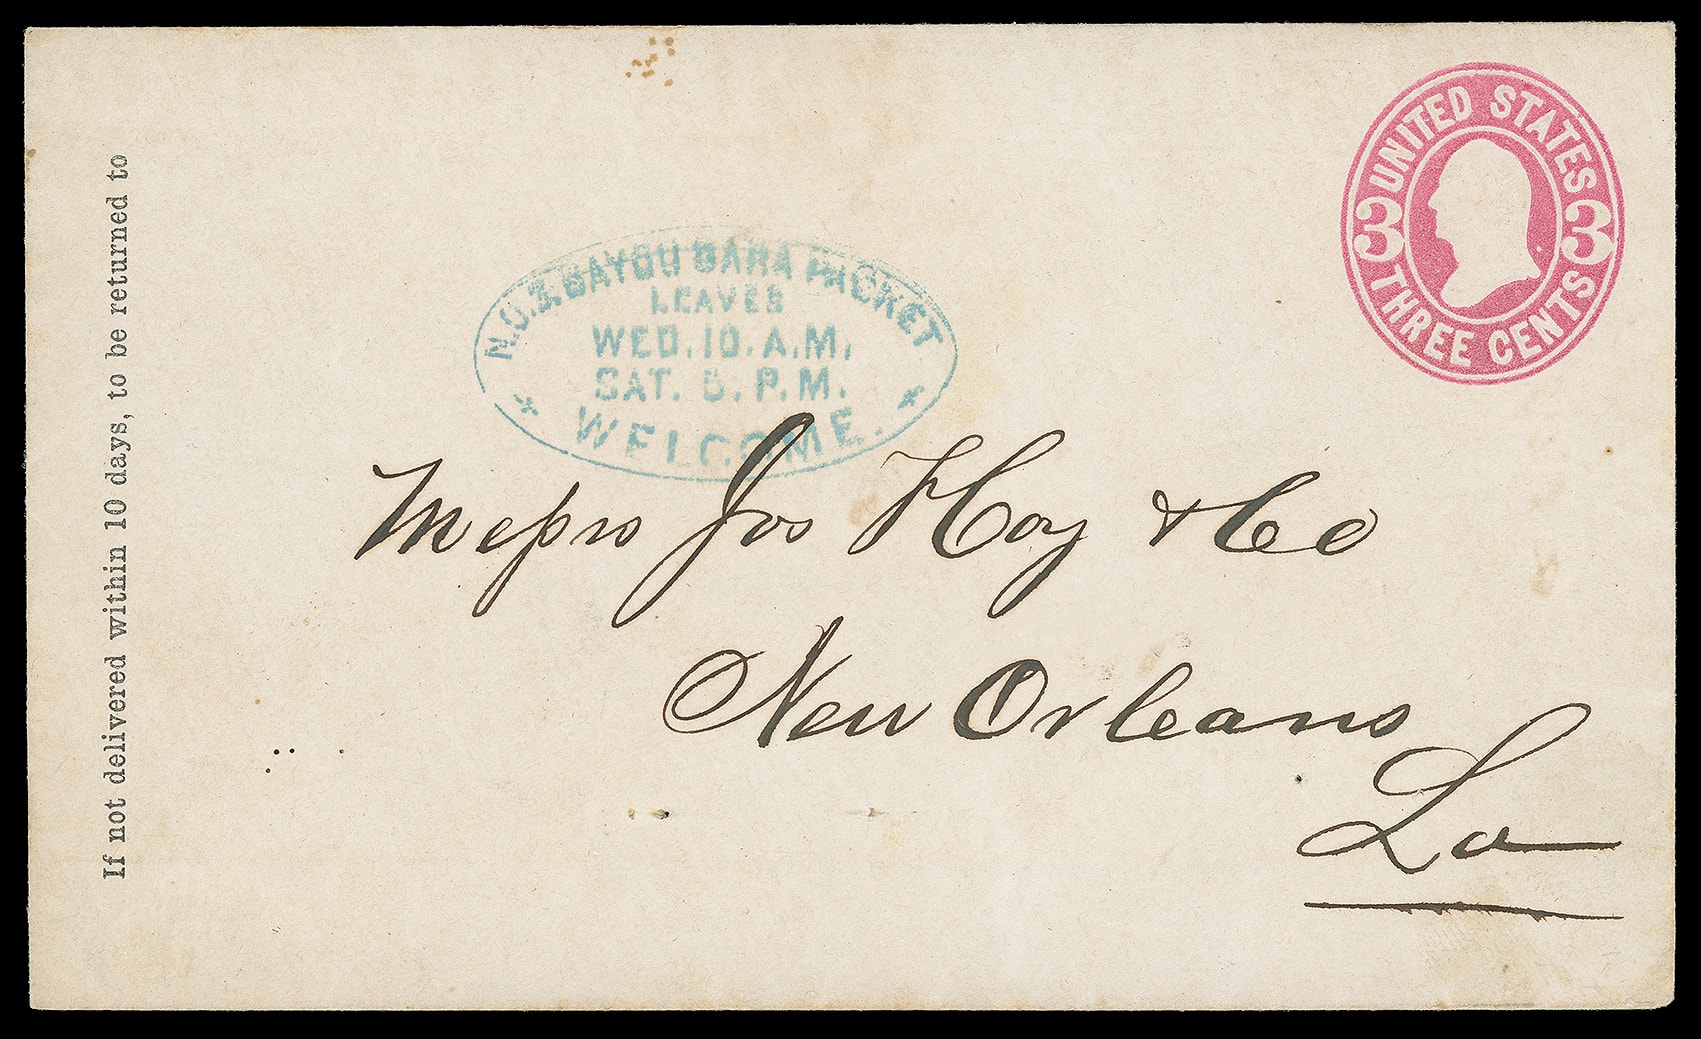 If not delivered within 10 days, to be returned to
N.O. & BAYOU SARA PACKET
LEAVES
WED. 10. A.M.
SAT. 5. P.M.
WELCOME.
UNITED STATES
3 3
THREE CENTS
Messrs Jos Hoy & Co
New Orleans
La